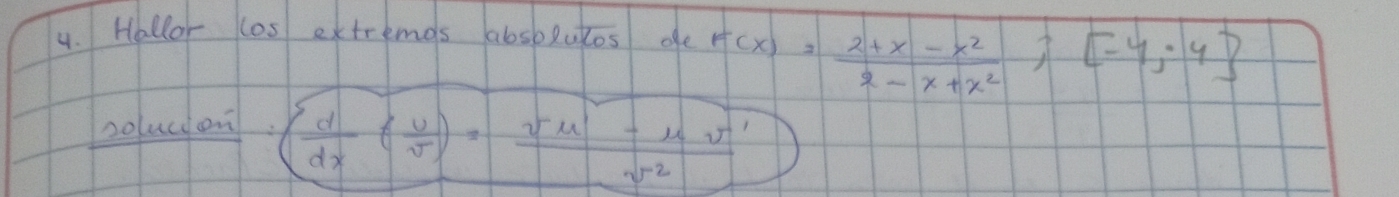 4. Hallar los extremos absolutos de f(x) = (2+x-x²)/(2-x+x²) ; [-4; 4]
solución : d/dx (u/v) = (vu' - uv')/v²